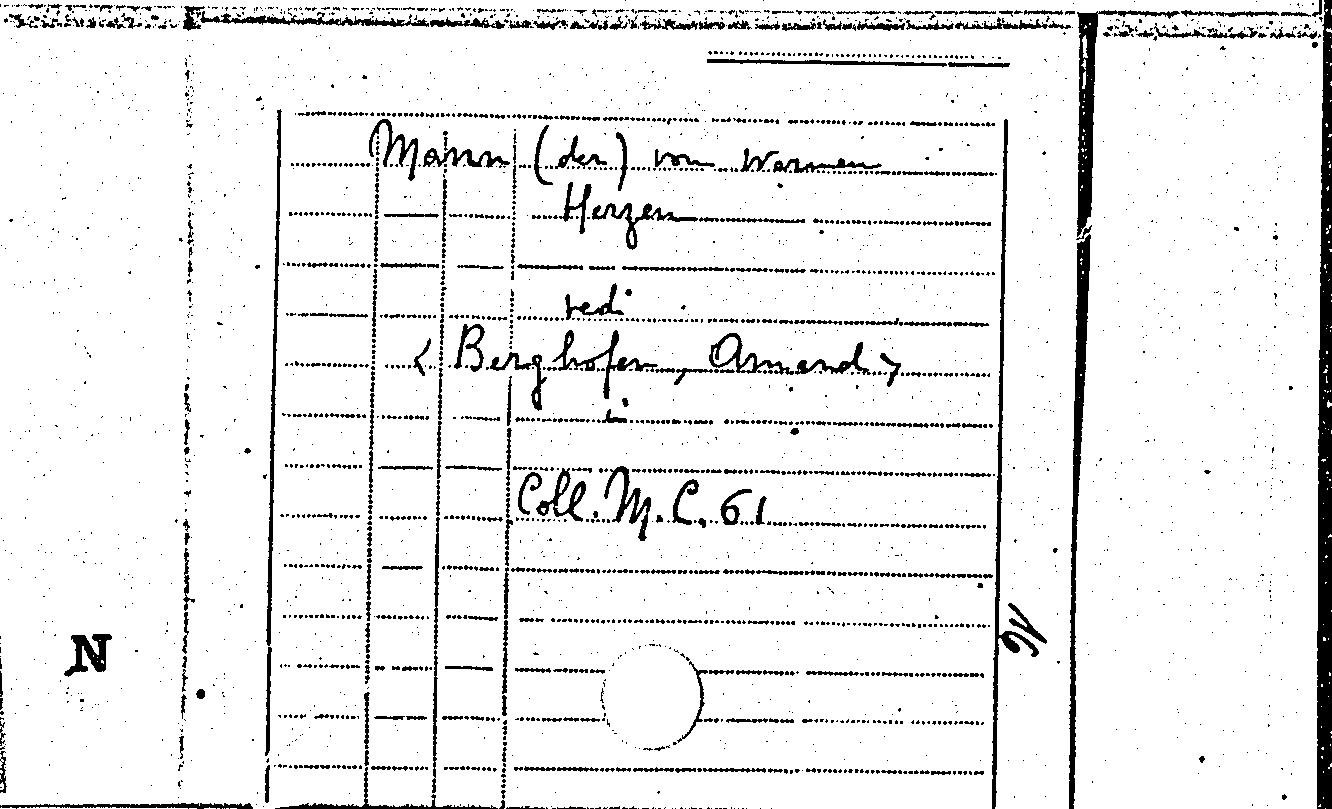 Mann (der) vom warmen
Herzen
vedi
< Berghofer, Amand >
in
Coll. M. C. 61
N